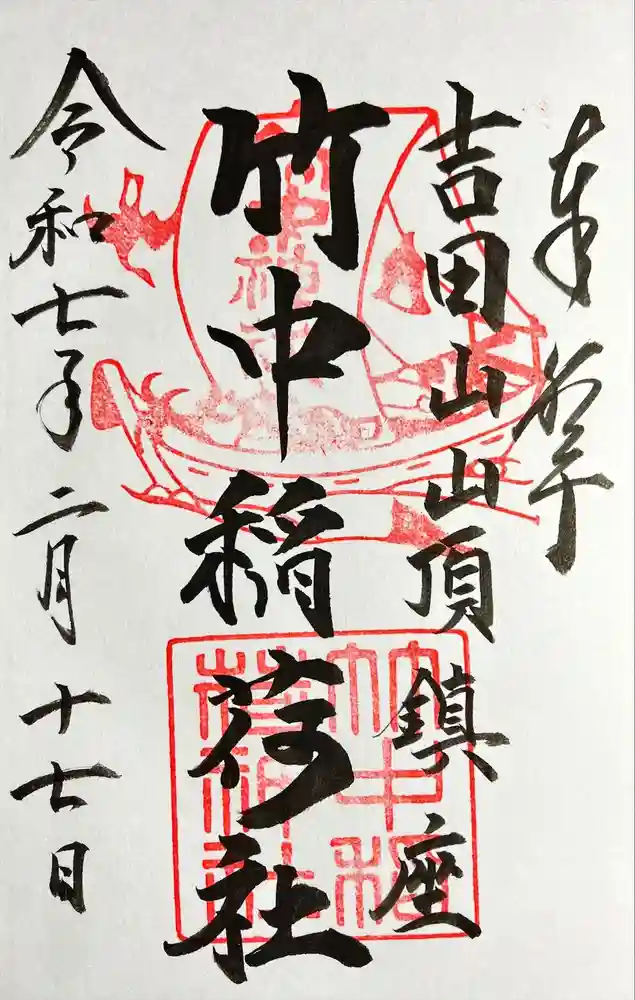 奉拝
吉田山山頂鎮座
竹中稲荷社
令和七年二月十七日
竹中稲
荷神社